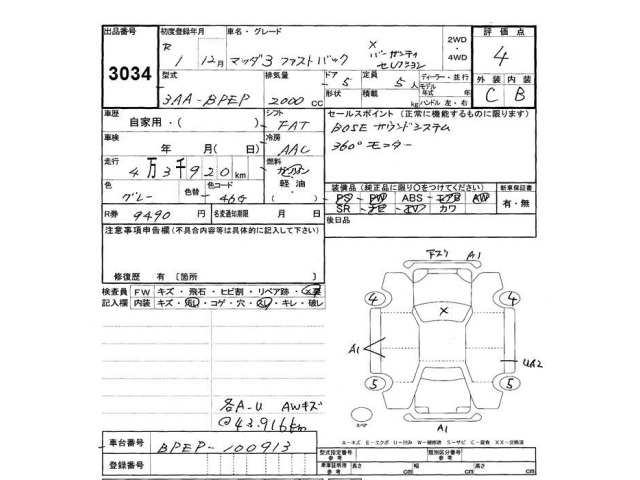 出品番号 初度登録年月 車名・グレード 2WD ・ 4WD 評価点
3034
R 1 12月 マツダ3 ファストバック X バーガンディ セレクション 4
型式 排気量 ドア 定員 ディーラー・並行 外装 内装
3AA-BPEP 2000 CC 5 5人 モデル年式 年 C B
形状 積載 kg ハンドル 左・右
車歴 自家用・( ) シフト FAT セールスポイント (正常に機能するものに限ります)
車検 年 月( 日) 冷房 AAC BOSEサウンドシステム
走行 4万3千920km 燃料 ガソリン 軽油 ( ) 360°モニター
色 グレー 色替 色コード 46G 装備品 (純正品に限り○をつけてください) 新車保証書
PS PW ABS エアB AW 有・無
SR ナビ TV カワ
R券 9490 円 名変通知期限 月 日 後日品
注意事項申告欄(不具合内容等は具体的に記入して下さい)
修復歴 有 [箇所 ]
検査員記入欄 FW キズ・飛石・ヒビ割・リペア跡・X要
内装 キズ・汚レ・コゲ・穴・スレ・キレ・破レ
A1
4 4
X
A1 UA2
5 5
スペア
A1
各A-U AWキズ
@43.916km
A-キズ E-エクボ U-凹み W-補修跡 S-サビ C-腐食 XX-交換済
車台番号 BPEP-100913
登録番号
型式指定番号 参考 類別区分番号 参考
車庫証明用 参考 長さ cm 幅 cm 高さ cm